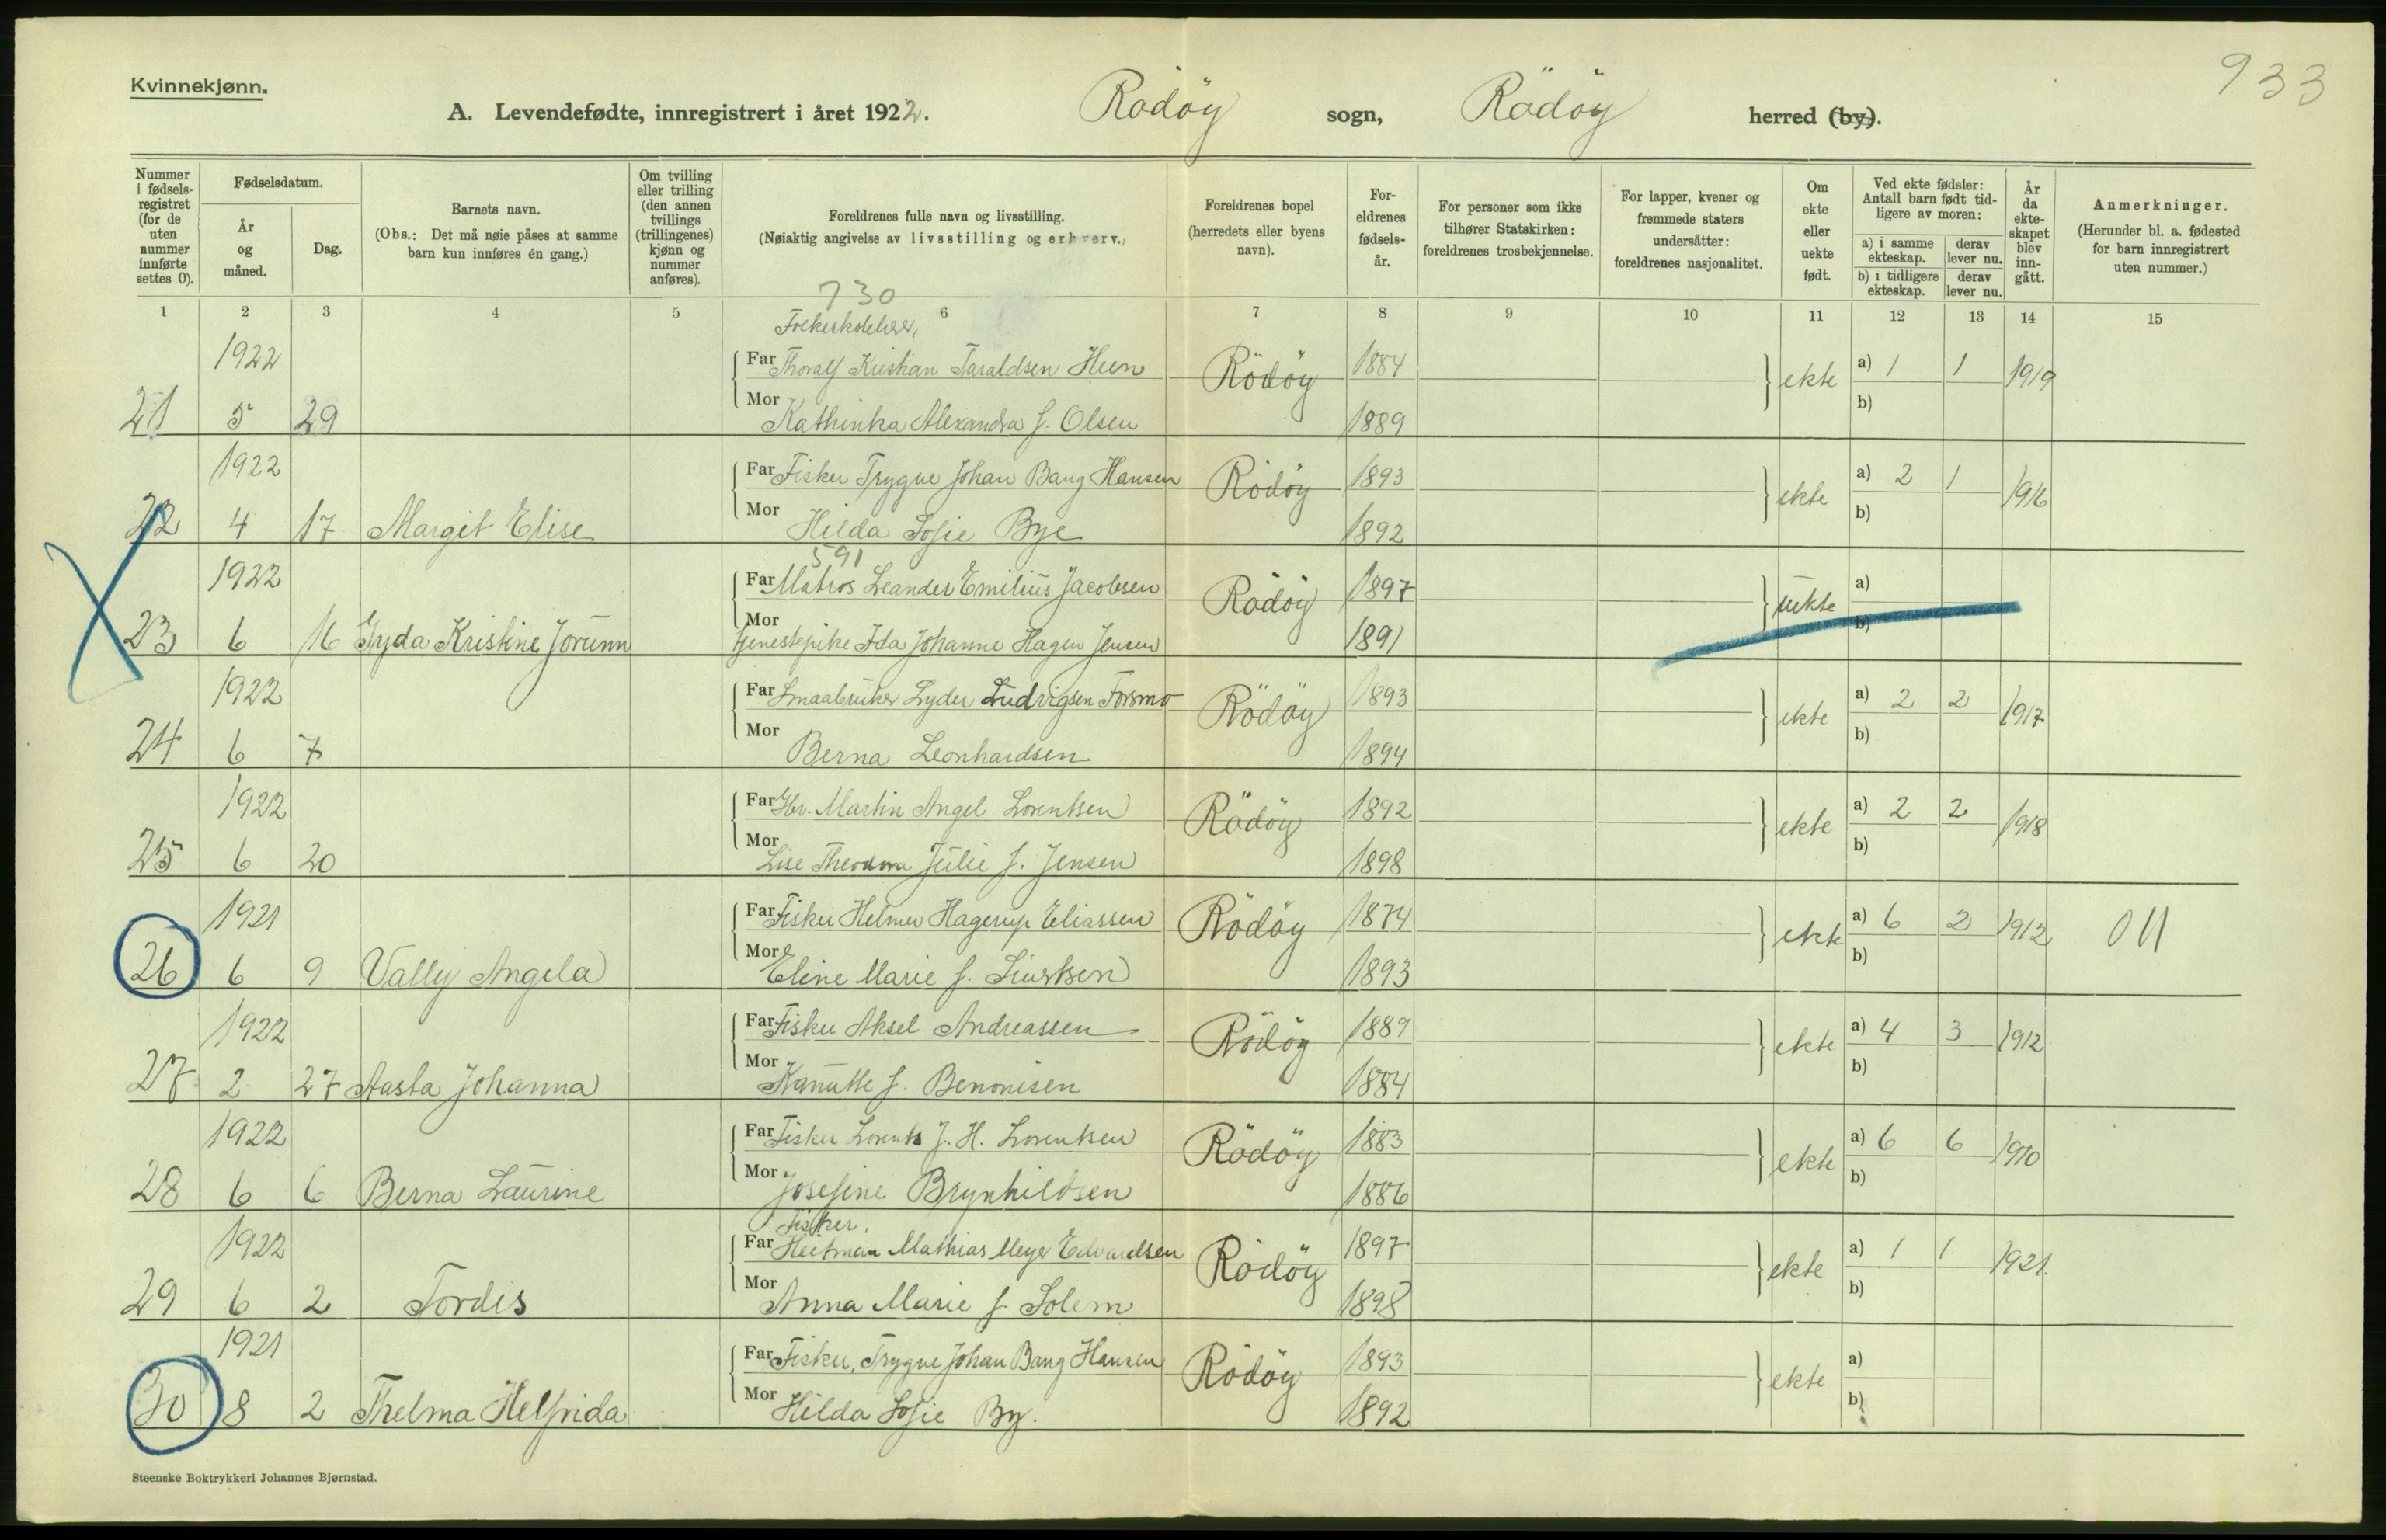 933
Kvinnekjønn.
A. Levendefødte, innregistrert i året 1922. Rødøy sogn, Rødøy herred (by).
Nummer i fødselsregistret (for de uten nummer innførte settes 0).
Fødselsdatum.
År og måned.
Dag.
Barnets navn.
(Obs.: Det må nøie påses at samme barn kun innføres én gang.)
Om tvilling eller trilling (den annen tvillings (trillingenes) kjønn og nummer anføres).
Foreldrenes fulle navn og livsstilling.
(Nøiaktig angivelse av livsstilling og erhverv.)
Foreldrenes bopel (herredets eller byens navn).
Foreldrenes fødselsår.
For personer som ikke tilhører Statskirken: foreldrenes trosbekjennelse.
For lapper, kvener og fremmede staters undersåtter: foreldrenes nasjonalitet.
Om ekte eller uekte født.
Ved ekte fødsler: Antall barn født tidligere av moren:
a) i samme ekteskap. derav lever nu.
b) i tidligere ekteskap. derav lever nu.
År da ekteskapet blev inngått.
Anmerkninger.
(Herunder bl. a. fødested for barn innregistrert uten nummer.)
1 2 3 4 5 6 7 8 9 10 11 12 13 14 15
730
Folkeskolelærer,
1922 Far Thoralf Kristian Taraldsen Heen Rödöy 1884 ekte a) 1 1 1919
21 5 29 Mor Kathinka Alexandra f. Olsen 1889 b)
1922 Far Fisker Trygve Johan Bang Hansen Rödöy 1893 ekte a) 2 1 1916
22 4 17 Margit Elise Mor Hilda Sofie Bye 1892 b)
591
1922 Far Matros Leander Emilius Jacobsen Rödöy 1897 uekte a)
23 6 16 Gyda Kristine Jorunn Mor tjenestepike Ida Johanne Hagen Jensen 1891 b)
1922 Far Smaabruker Lyder Ludvigsen Forsmo Rödöy 1893 ekte a) 2 2 1917
24 6 7 Mor Berna Leonhardsen 1894 b)
1922 Far Gbr. Martin Angel Lorentsen Rödöy 1892 ekte a) 2 2 1918
25 6 20 Mor Lise Theodora Julie f. Jensen 1898 b)
1921 Far Fisker Helmer Hagerup Eliassen Rödöy 1874 ekte a) 6 2 1912 011
26 6 9 Vally Angela Mor Eline Marie f. 1893 b)
1922 Far Fisker Aksel Andreassen Rödöy 1889 ekte a) 4 3 1912
27 2 27 Aasta Johanna Mor Kanutte f. Benonisen 1884 b)
1922 Far Fisker Lorents J. H. Lorentsen Rödöy 1883 ekte a) 6 6 1910
28 6 6 Berna Laurine Mor Josefine Brynhildsen 1886 b)
Fisker,
1922 Far Heitman Mathias Meyer Edvardsen Rödöy 1897 ekte a) 1 1 1921.
29 6 2 Tordis Mor Anna Marie f. Solem 1898 b)
1921 Far Fisker, Trygve Johan Bang Hansen Rödöy 1893 ekte a)
30 8 2 Thelma Helfrida Mor Hilda Sofie By. 1892 b)
Steenske Boktrykkeri Johannes Bjørnstad.